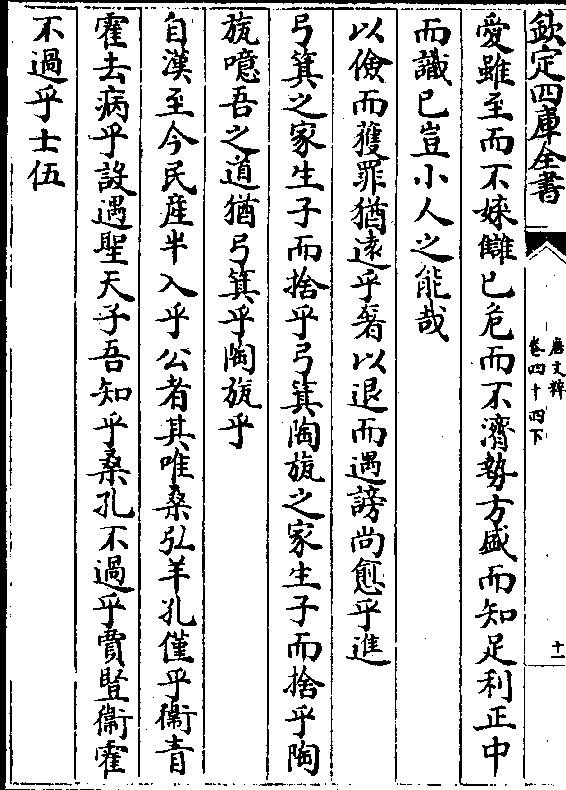 欽定四庫全書
唐文粹
卷四十四下
十一
愛雖至而不媟讎已危而不濟勢方盛而知足利正中
而識已豈小人之能哉
以儉而獲罪猶遠乎奢以退而遇謗尚愈乎進
弓箕之家生子而捨乎弓箕陶瓬之家生子而捨乎陶
瓬噫吾之道猶弓箕乎陶瓬乎
自漢至今民産半入乎公者其唯桑弘羊孔僅乎衞青
霍去病乎設遇聖天子吾知乎桑孔不過乎賈豎衞霍
不過乎士伍